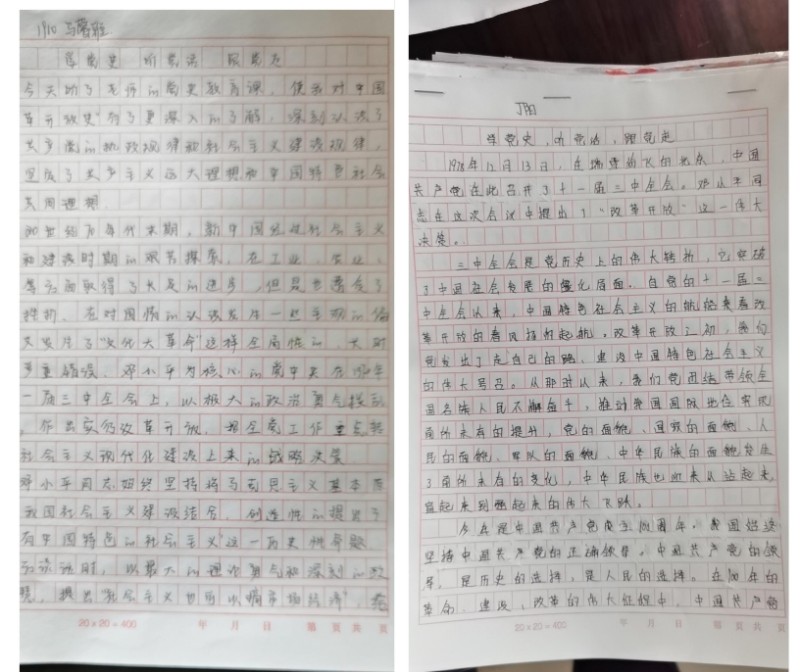 1910
学党史 听党话 跟党走
今天听了 的党史教育课，使我对中国
革开放史有了更深入的了解，深刻认识了
共产党的执政规律和社会主义建设规律，
坚定了共产主义远大理想和中国特色社会
共同理想。
年代末期，新中国经过社会主义
和建设时期的艰苦探索，在工业、农业、
等方面取得了长足的进步，但是也遭受了
挫折。在对国情的认识发生一些主观的偏
又发生了"文化大革命"这样全局性的、长时
严重错误。邓小平为核心的党中央在
一届三中全会上，以极大的政治勇气
，作出实行改革开放、把全党工作重点转
社会主义现代化建设上来的战略决策
邓小平同志始终坚持将马克思主义基本原
我国社会主义建设结合，创造性的提出了
有中国特色的社会主义"这一历史性命题
谈话时，以最大的理论勇气和深刻的
，提出"社会主义也可以搞市场经济"，
20×20=400 年 月 日 第 页 共 页
学党史，听党话，跟党走
1978年12月13日，在 的北京，中国
共产党在此召开了十一届三中全会。邓小平同
志在这次会议中提出了"改革开放"这一伟大
决策。
三中全会是党历史上的伟大转折，它突破
了中国社会发展的僵化局面。自党的十一届三
中全会以来，中国特色社会主义的航船乘着改
革开放的春风扬帆起航。改革开放之初，我们
党发出了走自己的路、建设中国特色社会主义
的伟大号召。从那时以来，我们党团结带领全
国各族人民不懈奋斗，推动我国国际地位实现
前所未有的提升，党的面貌、国家的面貌、人
民的面貌、军队的面貌、中华民族的面貌发生
了前所未有的变化，中华民族迎来从站起来、
富起来到强起来的伟大飞跃。
今年是中国共产党成立100周年，我国始终
坚持中国共产党的正确领导，中国共产党的领
导，是历史的选择，是人民的选择。在100年的
革命、建设、改革的伟大征程中，中国共产党
20×20=400 年 月 日 第 页 共 页